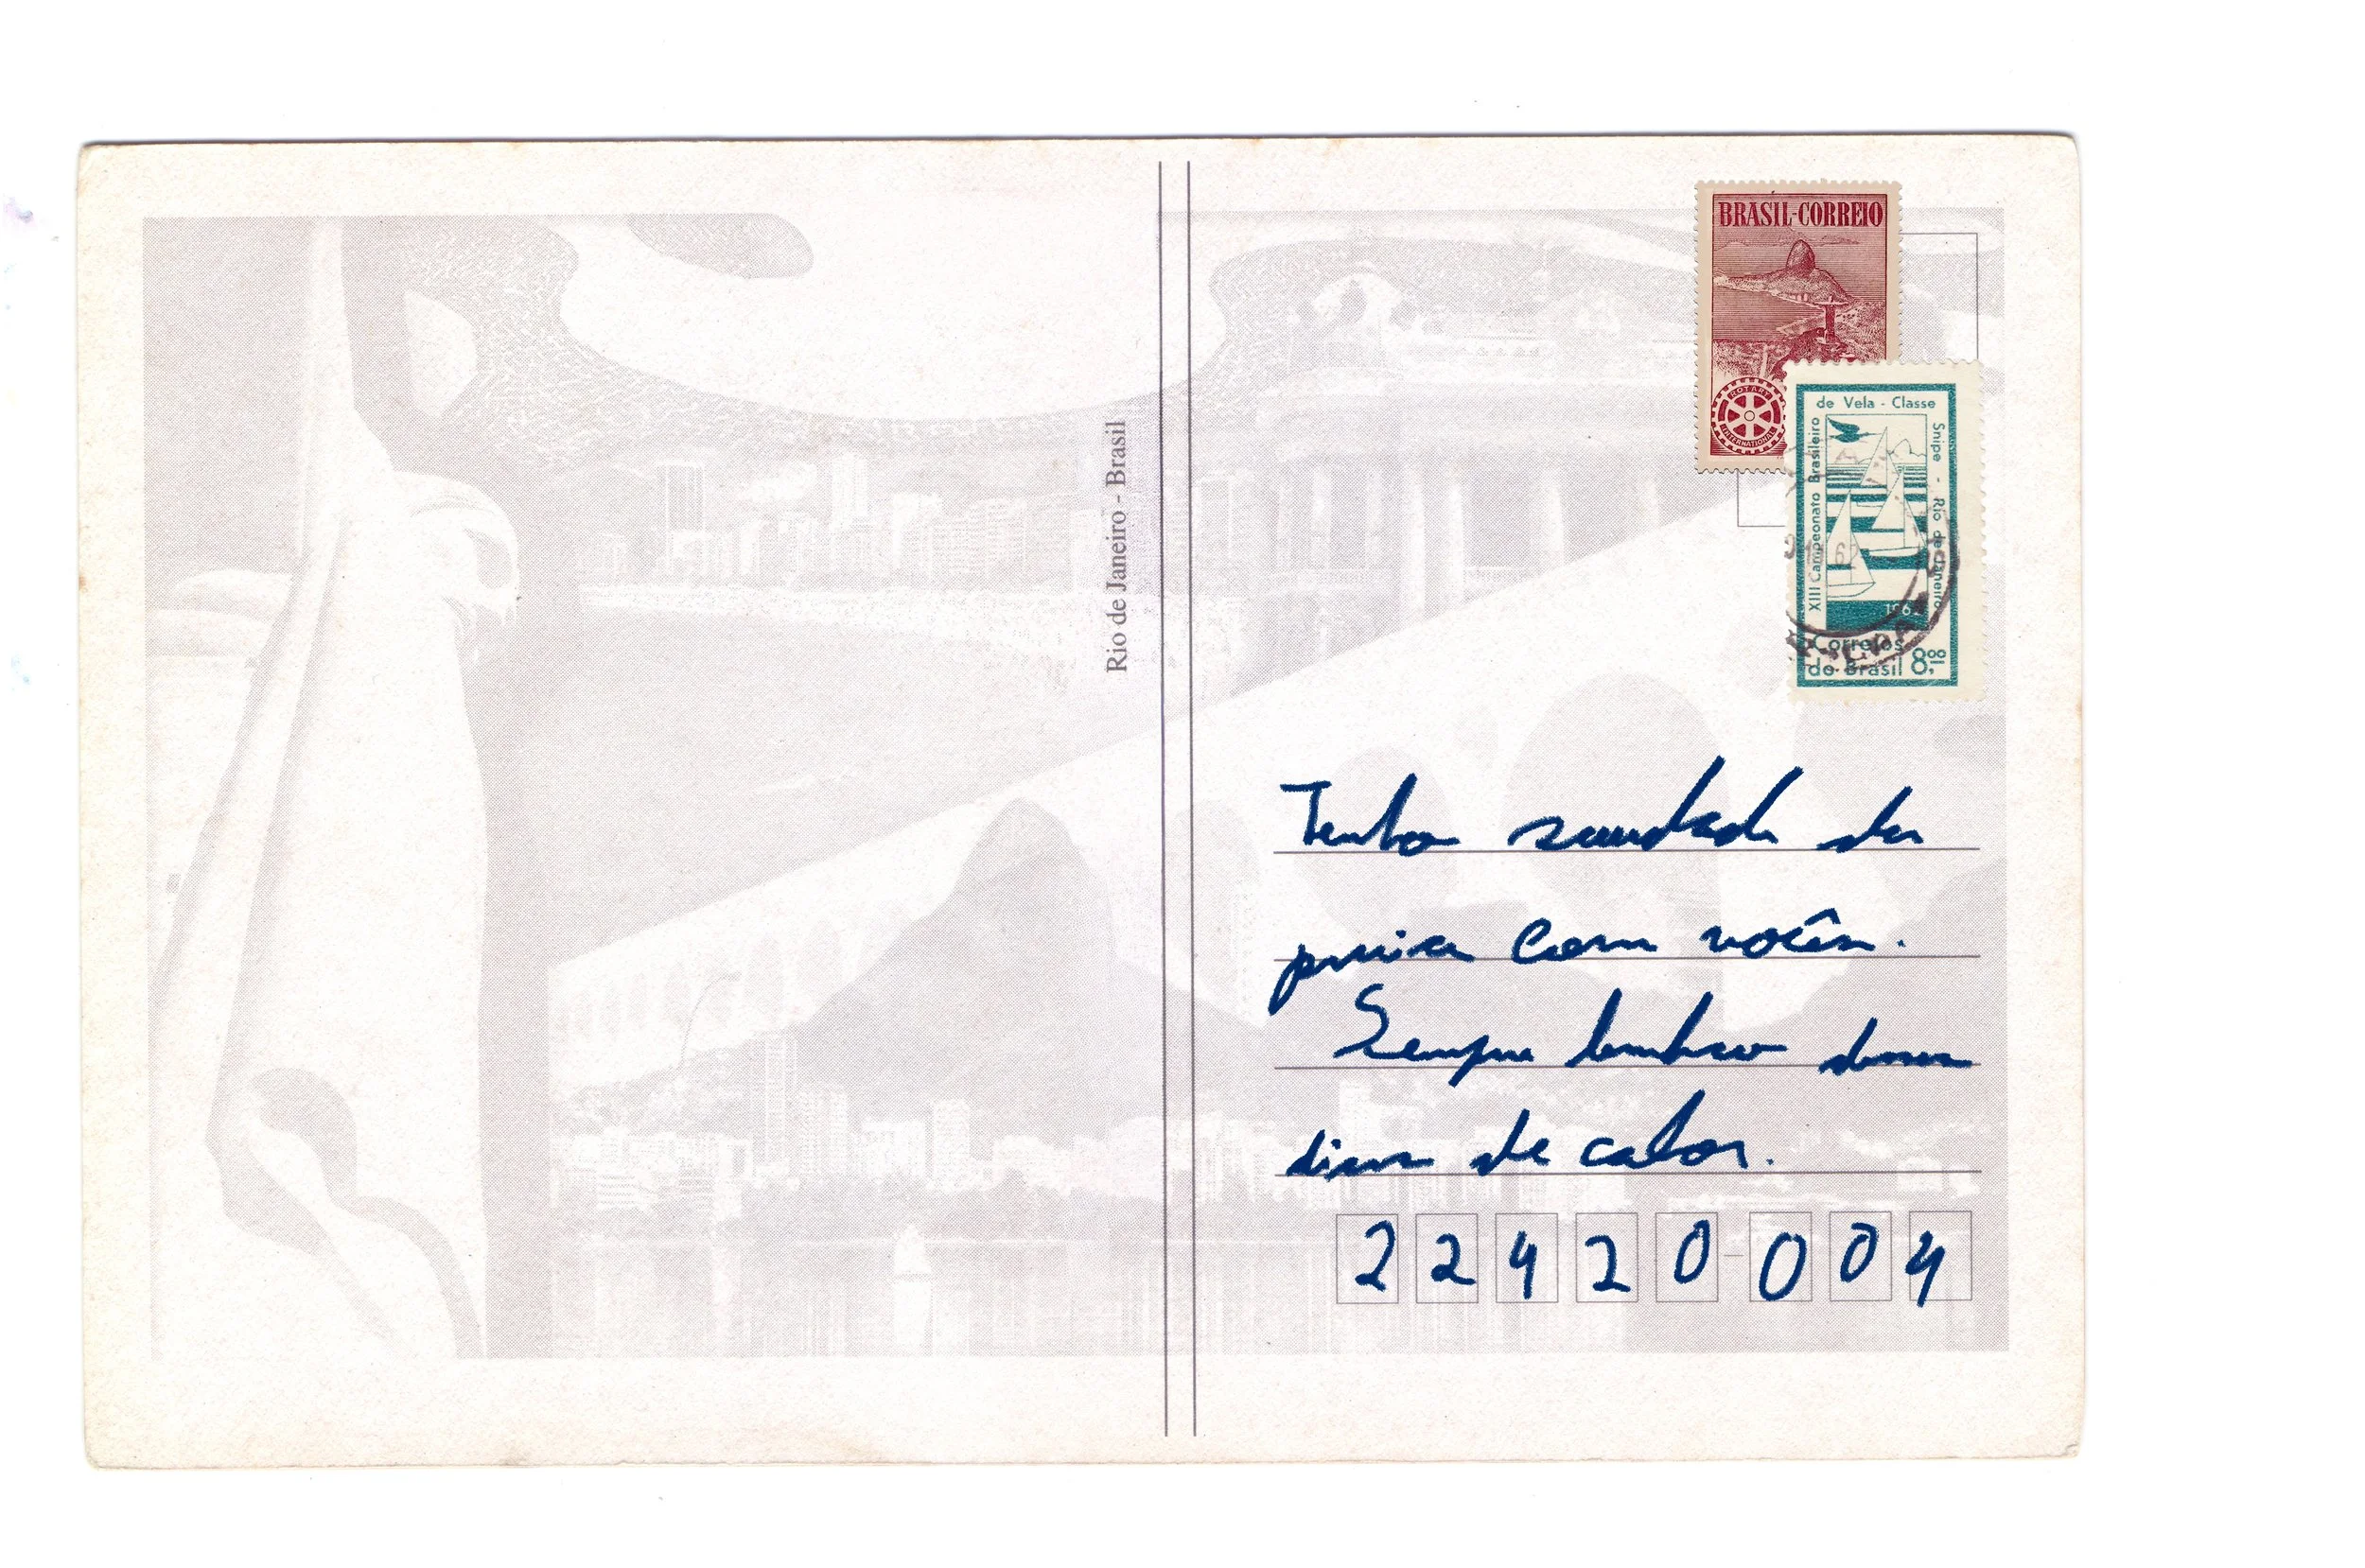 Rio de Janeiro - Brasil
BRASIL-CORREIO
ROTARY
INTERNATIONAL
de Vela - Classe
Snipe - Rio de Janeiro
XIII Campeonato Brasileiro
196
Correios
do Brasil 8,00
Tenho saudade da
praia com vocês.
Sempre lembro dosses
dias de calor.
22420-004